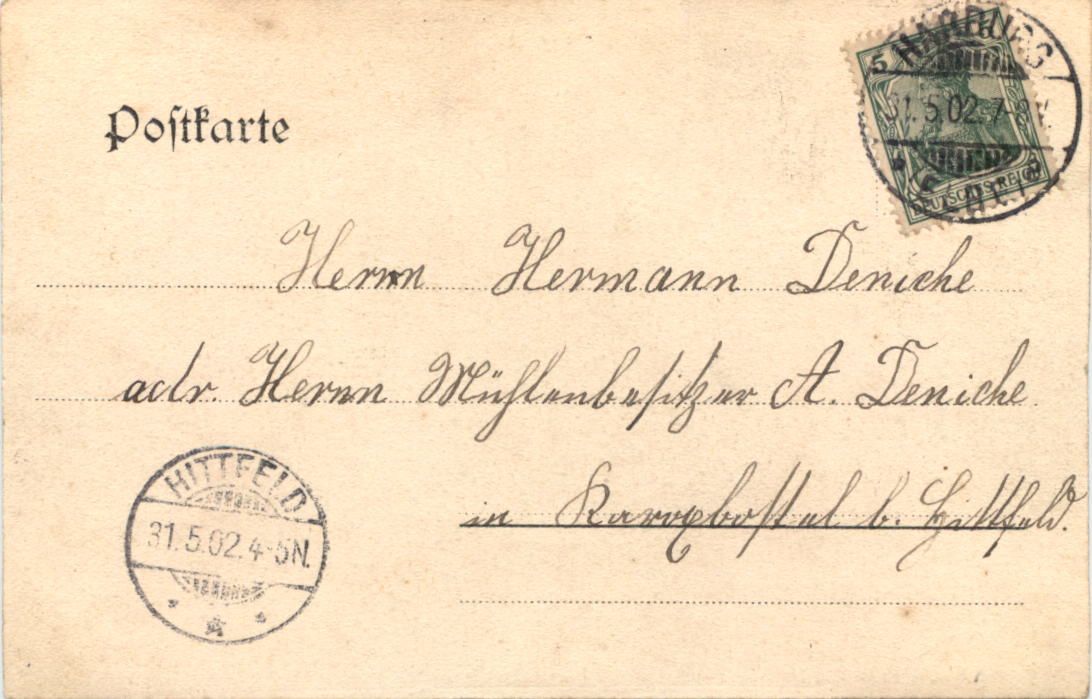 Postkarte
5
HARBURG
31.5.02.7-8V.
DEUTSCHES REICH
Herrn Hermann Deniche
adr. Herrn Mühlenbesitzer A. Deniche
in Karoxbostel b. Hittfeld.
HITTFELD
31.5.02.4-5N.